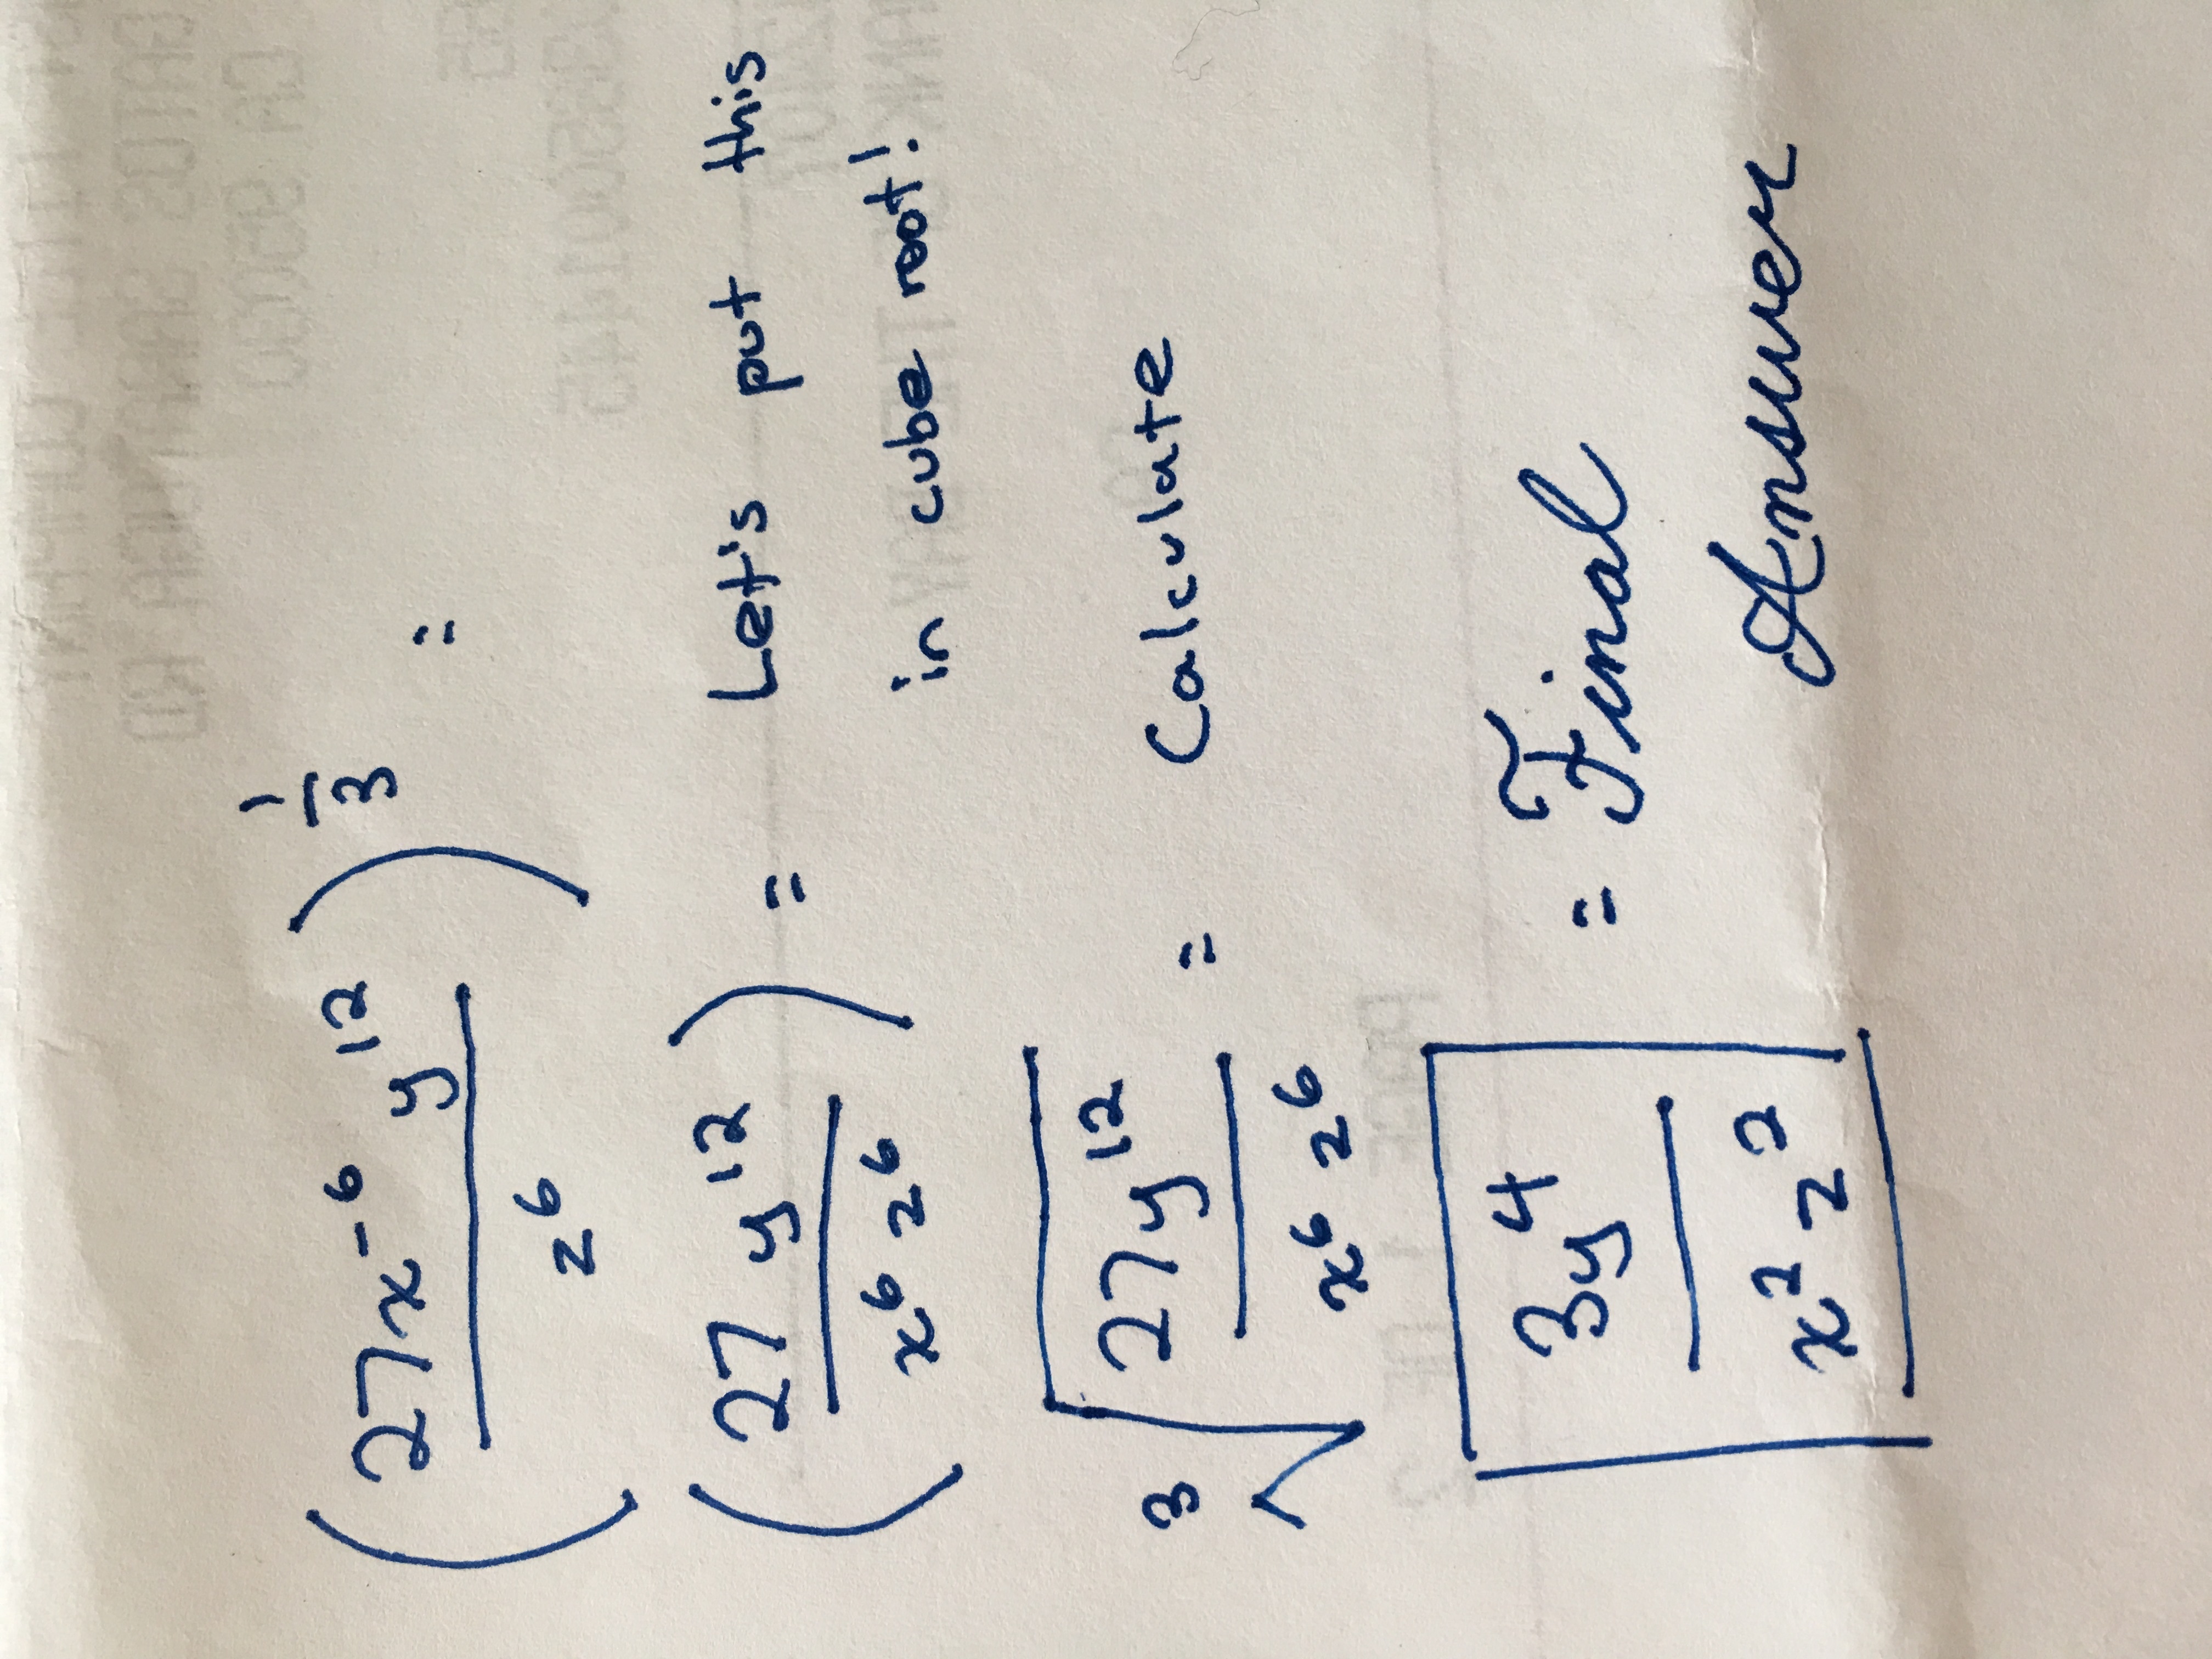 (27x⁻⁶ y¹² / z⁶)^(1/3) =
(27 y¹² / x⁶ z⁶) = Let's put this
in cube root!
³√(27y¹² / x⁶ z⁶) = Calculate
3y⁴ / x² z² = Final
Answer